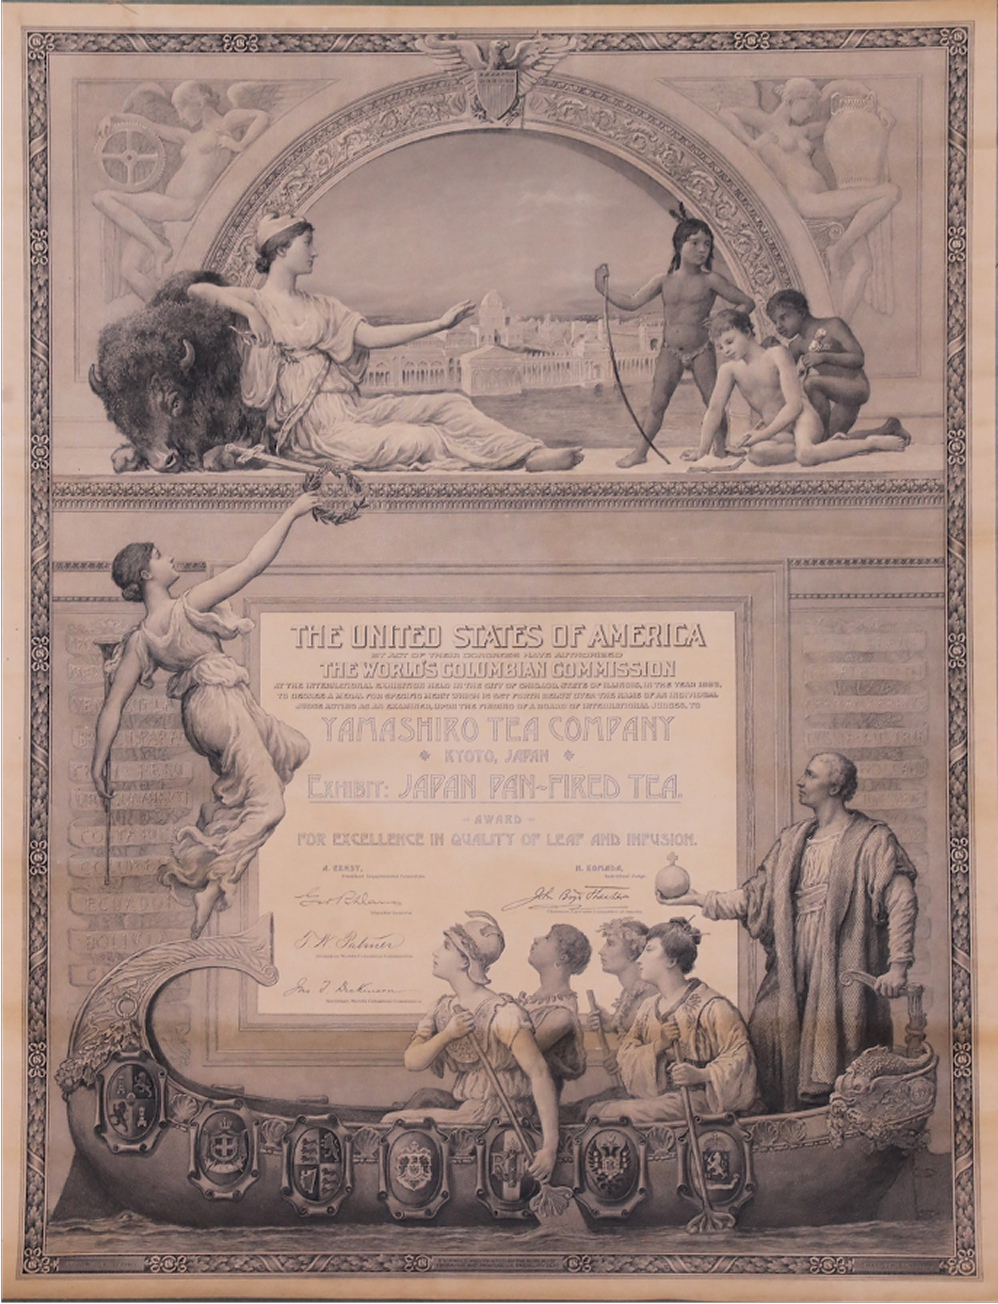 THE UNITED STATES OF AMERICA
BY ACT OF THEIR CONGRESS HAVE AUTHORIZED
THE WORLD'S COLUMBIAN COMMISSION
AT THE INTERNATIONAL EXHIBITION HELD IN THE CITY OF CHICAGO, STATE OF ILLINOIS, IN THE YEAR 1893,
TO DECREE A MEDAL FOR SPECIFIC MERIT WHICH IS SET FORTH BELOW OVER THE NAME OF AN INDIVIDUAL
JUDGE ACTING AS AN EXAMINER, UPON THE FINDING OF A BOARD OF INTERNATIONAL JUDGES, TO
YAMASHIRO TEA COMPANY
KYOTO, JAPAN
EXHIBIT: JAPAN PAN-FIRED TEA.
- AWARD -
FOR EXCELLENCE IN QUALITY OF LEAF AND INFUSION.
A. ERNST, H. KOMADA,
President Departmental Committee. Individual Judge.
John Boyd Thacher
Director General. Chairman Executive Committee on Awards.
T. W. Palmer
President World's Columbian Commission.
Jno T. Dickinson
Secretary World's Columbian Commission.
COSTA RICA
BOLIVIA